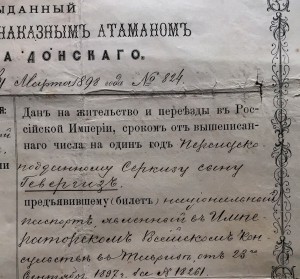 ЫДАННЫЙ
НАКАЗНЫМЪ АТАМАНОМЪ
А ДОНСКАГО.
Марта 1898 года № 824.
ІЙ:
Данъ на жительство и переѣзды въ Рос-
сійской Имперіи, срокомъ отъ вышеписан-
наго числа на одинъ годъ Персидско-
подданному Серкизу сыну
Гевергизъ
предъявившему (билетъ) національный
паспортъ, явленный въ Импе-
раторскомъ Россійскомъ Кон-
сульствѣ въ Тавризѣ, отъ 23го
Сентября 1897 г. за № 18261.